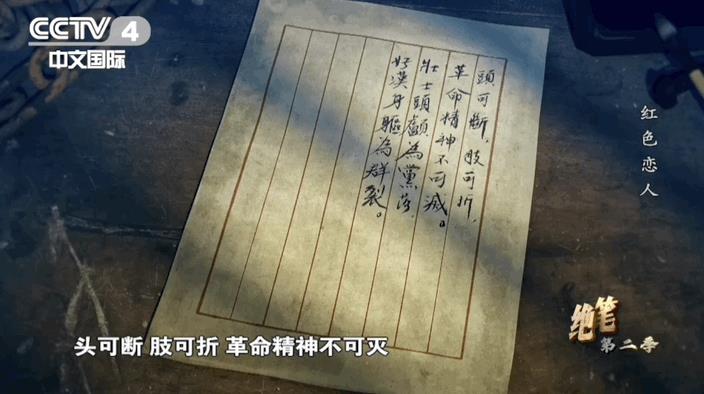 CCTV 4
中文国际
頭可斷，肢可折，
革命精神不可滅。
壯士頭顱為黨落，
好漢身軀為群裂。
红色恋人
绝笔
第二季
头可断 肢可折 革命精神不可灭